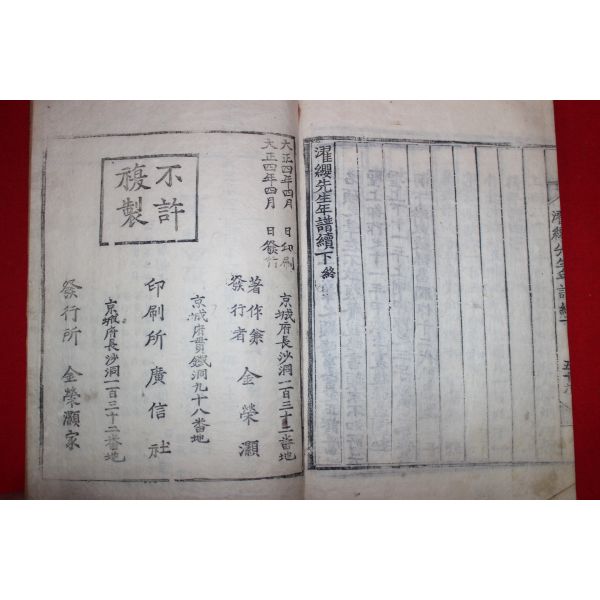 濯纓先生年譜續下終
大正四年四月　日印刷
大正四年四月　日發行
京城府長沙洞一百三十二番地
著作兼
發行者　金榮灝
京城府貫鐵洞九十八番地
印刷所　廣信社
京城府長沙洞一百三十二番地
發行所　金榮灝家
不許
複製